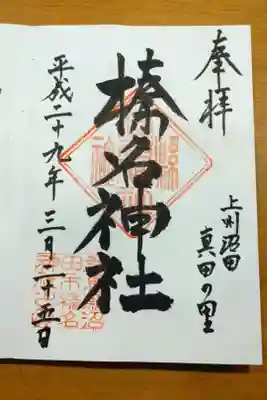 奉拝
上州沼田
真田の里
榛名神社
平成二十九年 三月二十五日